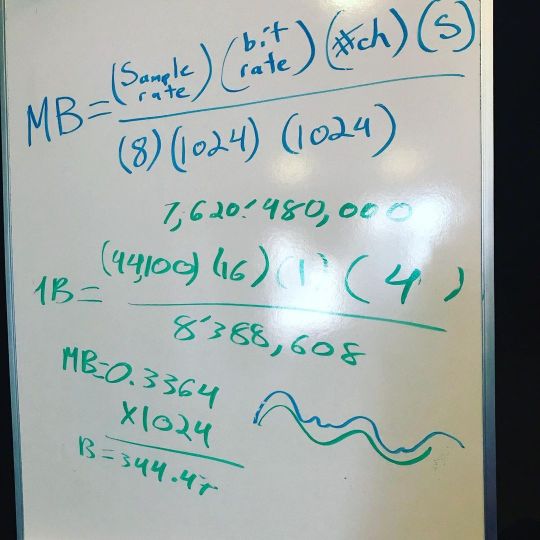 MB = (Sample rate) (bit rate) (#ch) (S)
(8) (1024) (1024)
7,620'480,000
(44,100) (16) (1) (4)
1B =
8'388,608
MB=0.3364
X1024
B=344.47